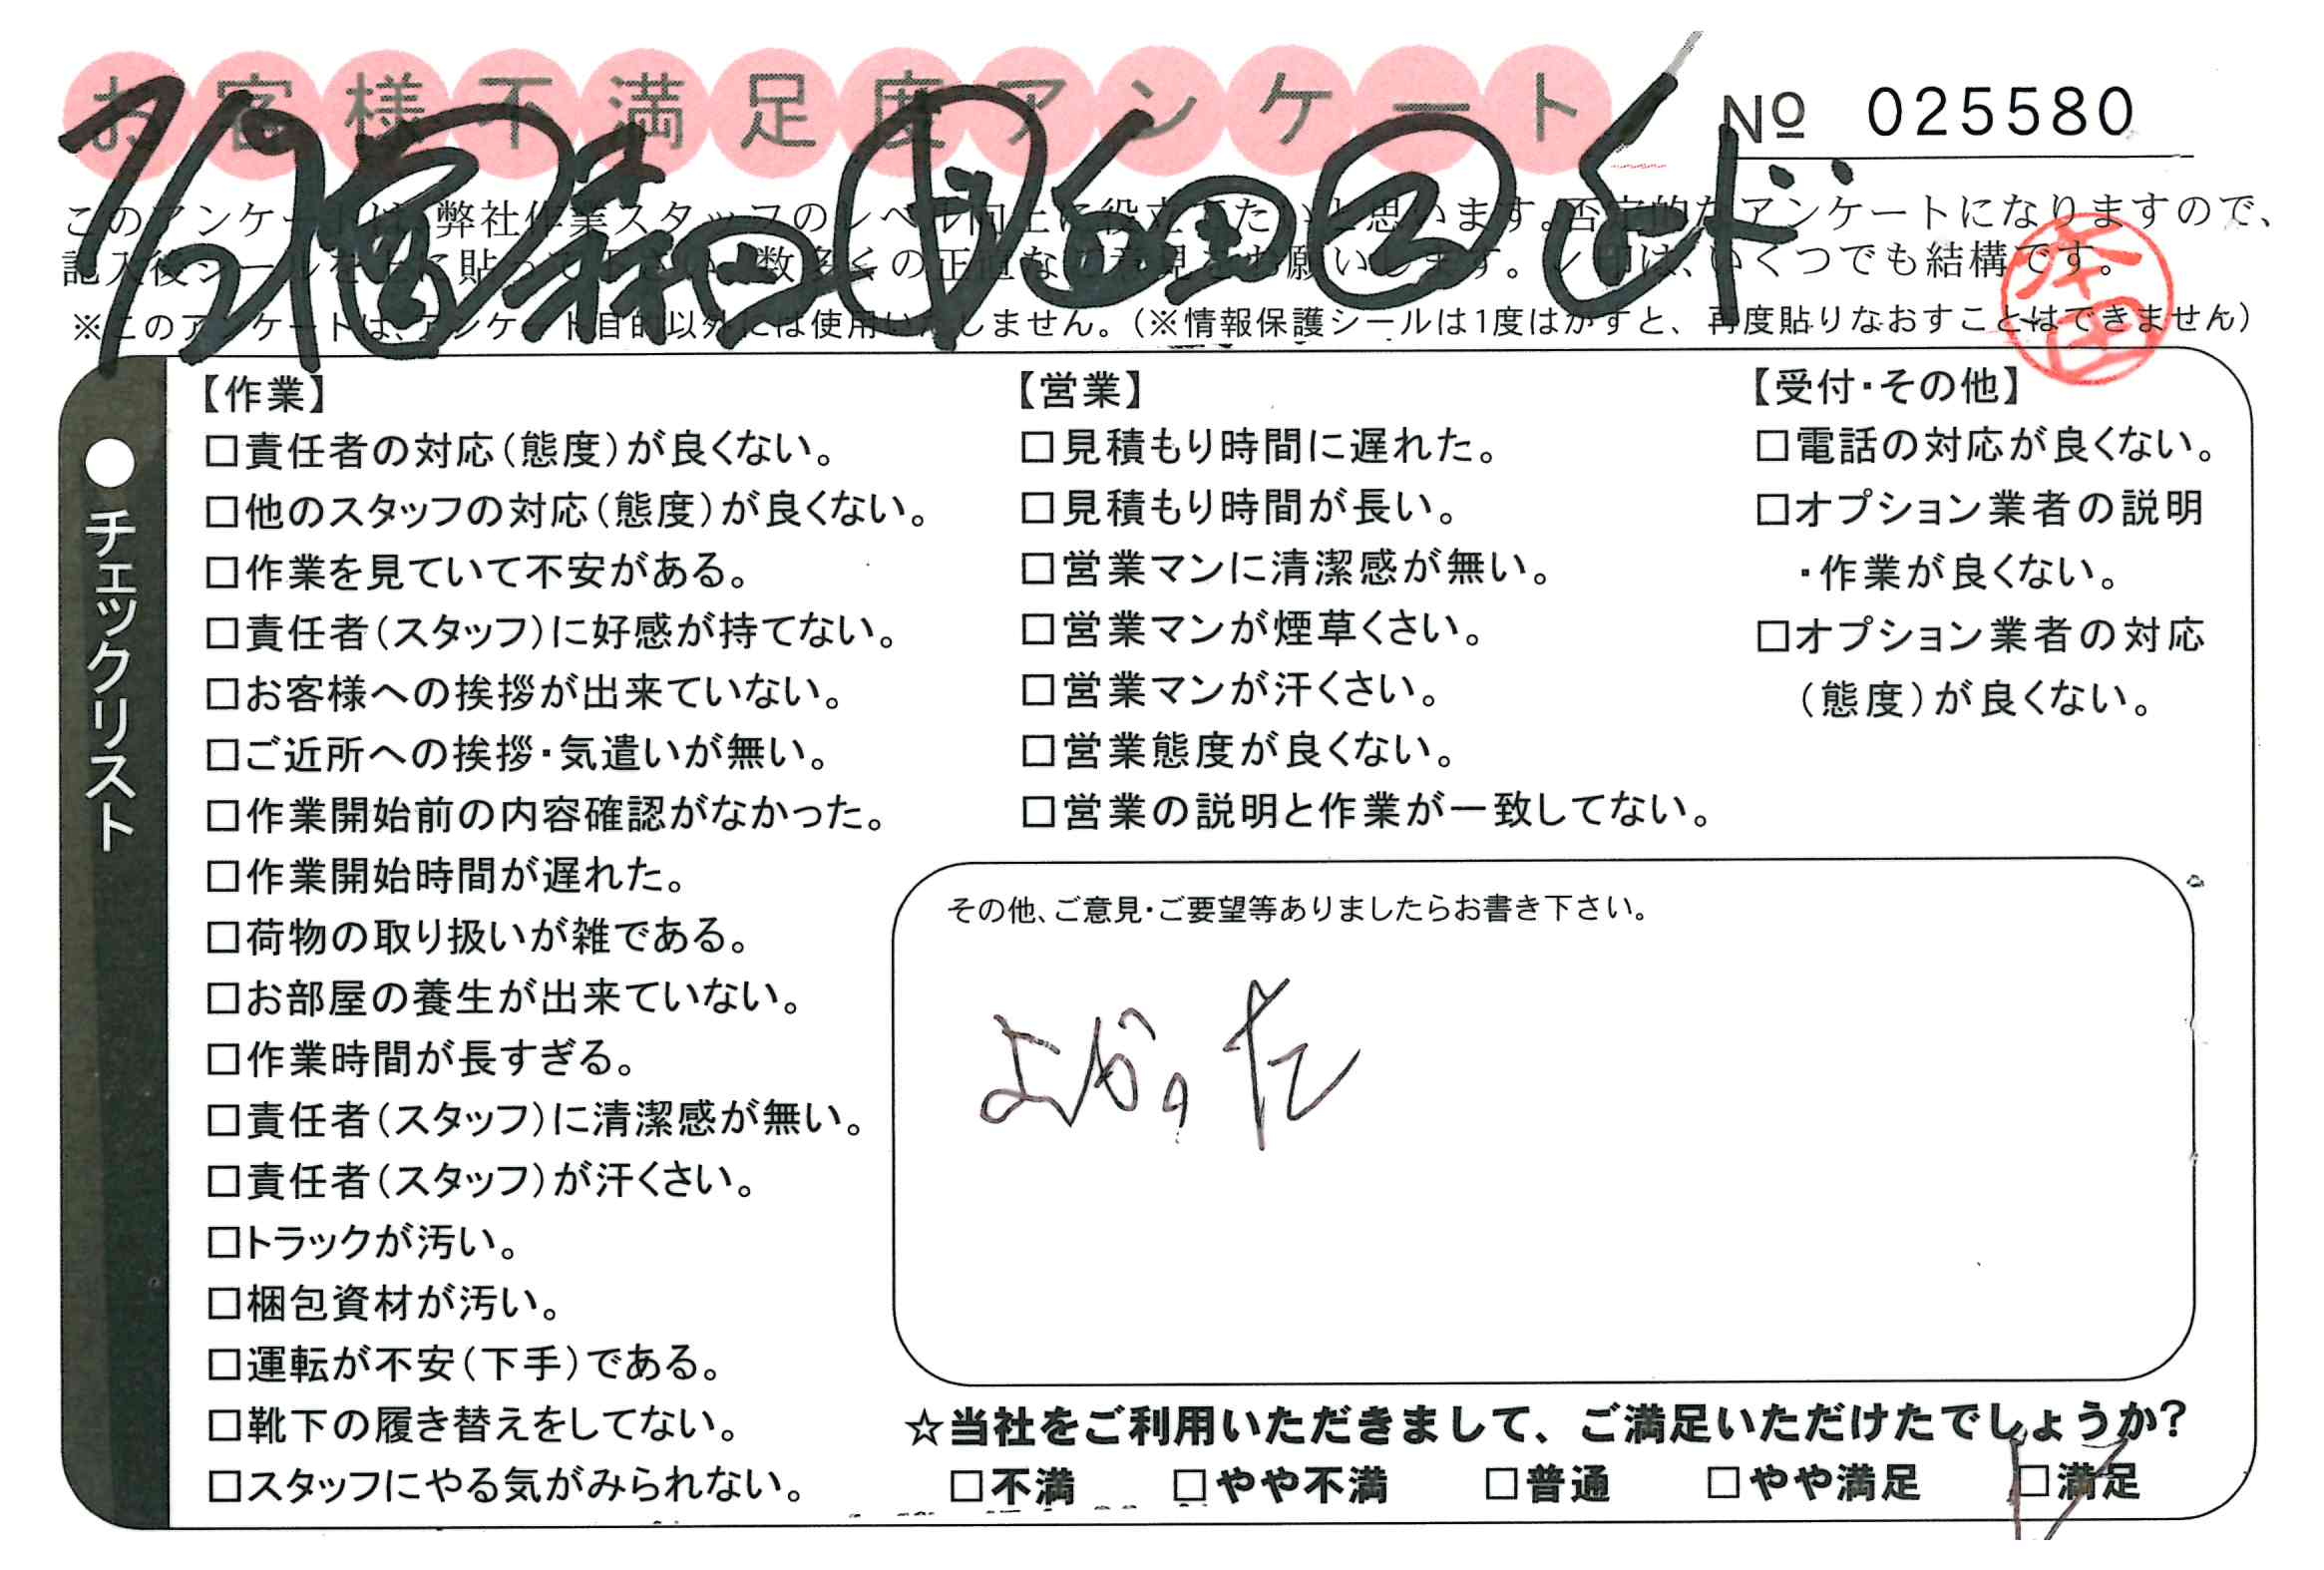 お客様不満足度アンケート
№ 025580
このアンケートは、弊社作業スタッフのレベル向上に役立てたいと思います。否定的なアンケートになりますので、
記入後シールを上に貼って下さい。数多くの正直なご意見をお願いします。レ印は、いくつでも結構です。
※このアンケートは、アンケート目的以外には使用いたしません。(※情報保護シールは1度はがすと、再度貼りなおすことはできません)
本田
●チェックリスト
【作業】
□責任者の対応(態度)が良くない。
□他のスタッフの対応(態度)が良くない。
□作業を見ていて不安がある。
□責任者(スタッフ)に好感が持てない。
□お客様への挨拶が出来ていない。
□ご近所への挨拶・気遣いが無い。
□作業開始前の内容確認がなかった。
□作業開始時間が遅れた。
□荷物の取り扱いが雑である。
□お部屋の養生が出来ていない。
□作業時間が長すぎる。
□責任者(スタッフ)に清潔感が無い。
□責任者(スタッフ)が汗くさい。
□トラックが汚い。
□梱包資材が汚い。
□運転が不安(下手)である。
□靴下の履き替えをしてない。
□スタッフにやる気がみられない。
【営業】
□見積もり時間に遅れた。
□見積もり時間が長い。
□営業マンに清潔感が無い。
□営業マンが煙草くさい。
□営業マンが汗くさい。
□営業態度が良くない。
□営業の説明と作業が一致してない。
【受付・その他】
□電話の対応が良くない。
□オプション業者の説明
・作業が良くない。
□オプション業者の対応
(態度)が良くない。
その他、ご意見・ご要望等ありましたらお書き下さい。
よかった
☆当社をご利用いただきまして、ご満足いただけたでしょうか?
□不満 □やや不満 □普通 □やや満足 □満足